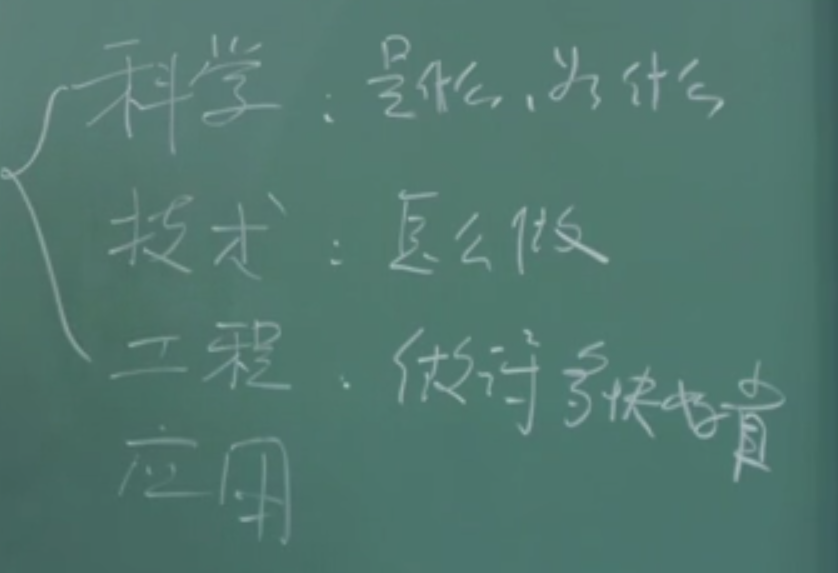 科学：是什么、为什么
技术：怎么做
工程：做得多快好省
应用